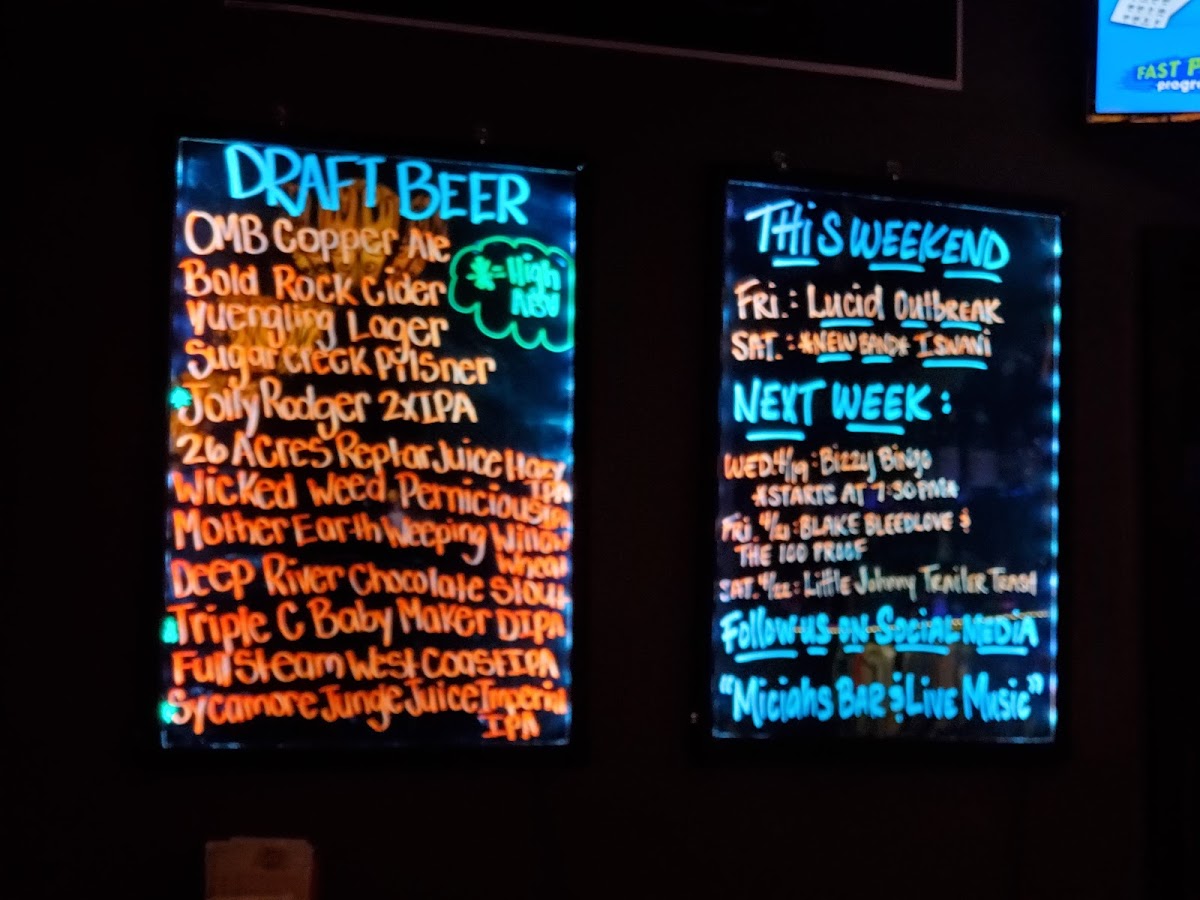 DRAFT BEER
OMB Copper Ale
* = High
ABV
Bold Rock Cider
Yuengling Lager
Sugar Creek Pilsner
* Jolly Rodger 2x IPA
26 Acres Reptar Juice Hazy
IPA
Wicked Weed Pernicious IPA
Mother Earth Weeping Willow
Wheat
Deep River Chocolate Stout
Triple C Baby Maker DIPA
Full Steam West Coast IPA
Sycamore Jungle Juice Imperial
IPA
THIS WEEKEND
FRI.: LUCID OUTBREAK
SAT.: *NEW BAND* ISWANI
NEXT WEEK:
WED. 4/19: Bizzy Bingo
*STARTS AT 7:30PM*
FRI. 4/21: BLAKE BLEEDLOVE &
THE 100 PROOF
SAT. 4/22: Little Johnny Trailer Trash
Follow us on Social Media
"Miciahs Bar & Live Music"
FAST